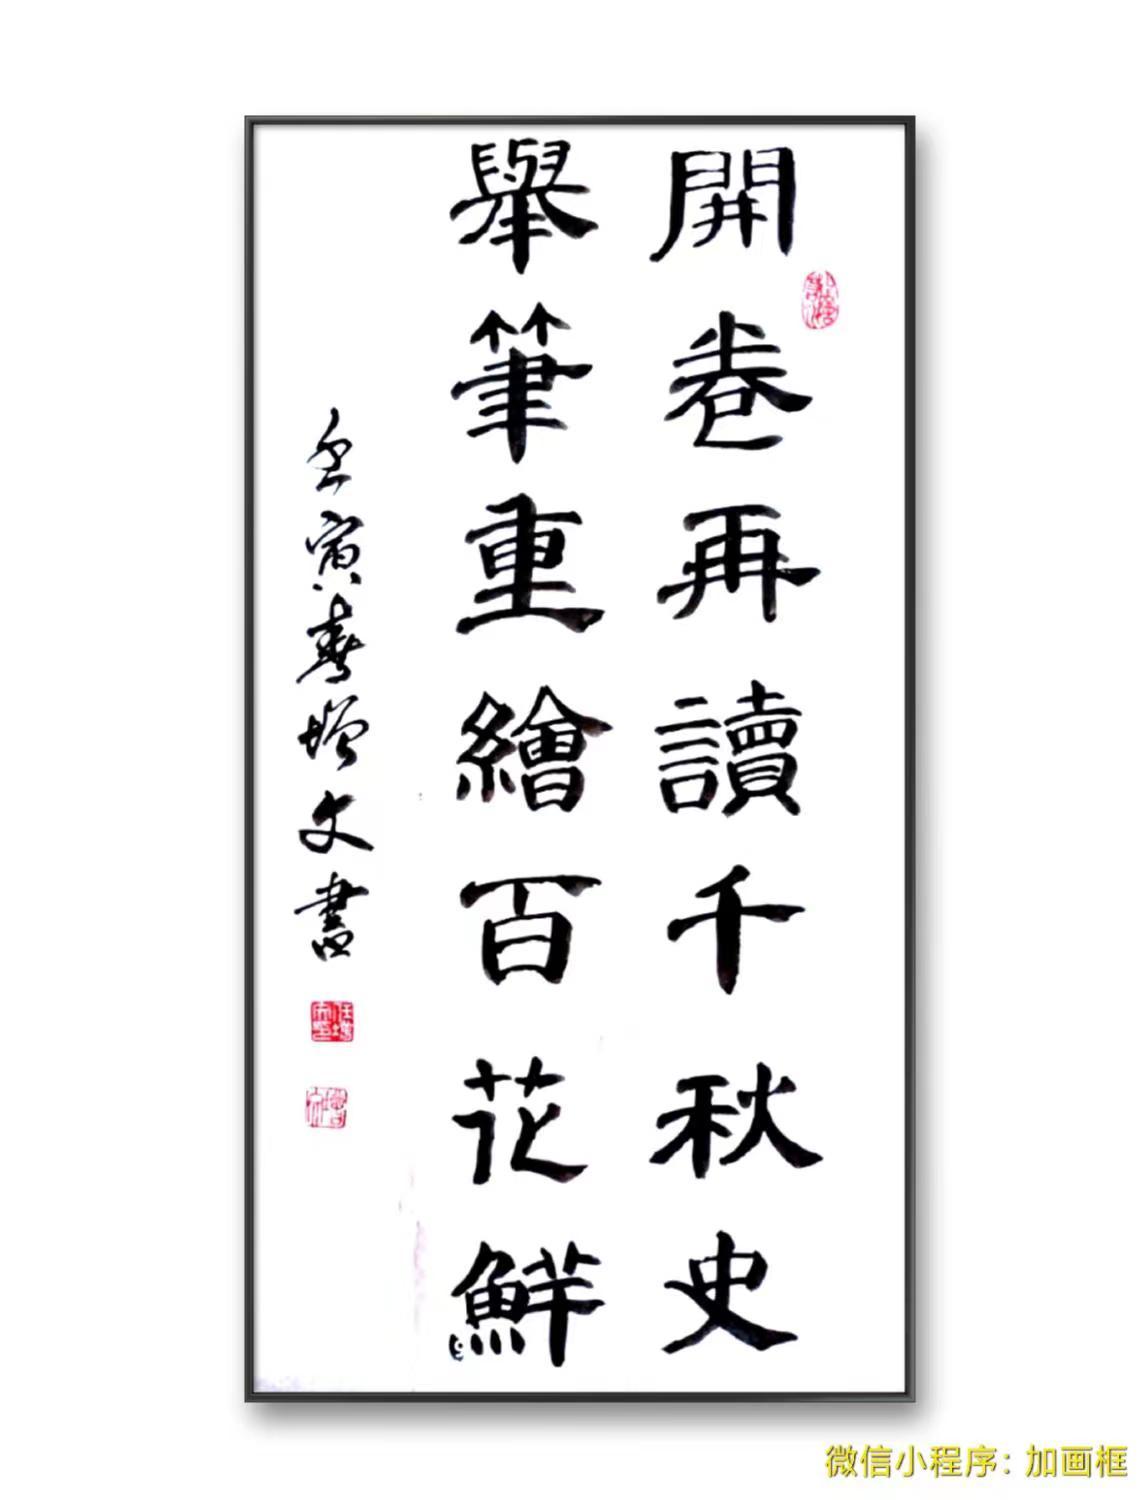 開卷再讀千秋史
舉筆重繪百花鮮
壬寅春增文書
微信小程序：加画框